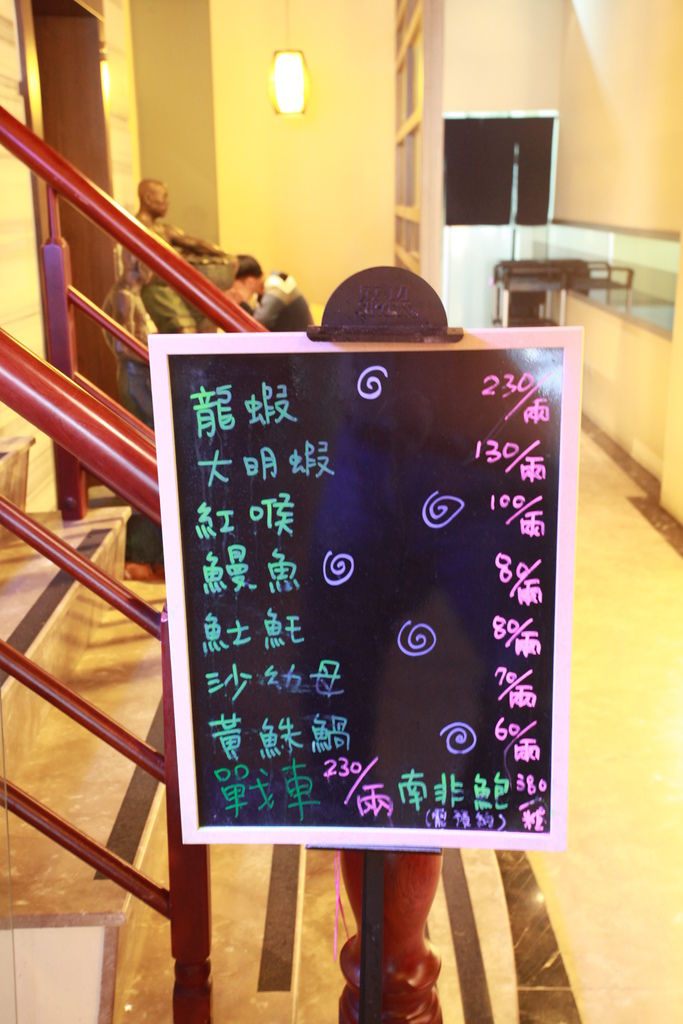 龍蝦 230/兩
大明蝦 130/兩
紅喉 100/兩
鰻魚 80/兩
魠魠 80/兩
沙幼母 70/兩
黃鮢鯻 60/兩
戰車 230/兩 南非鮑 380/粒
(需預約)